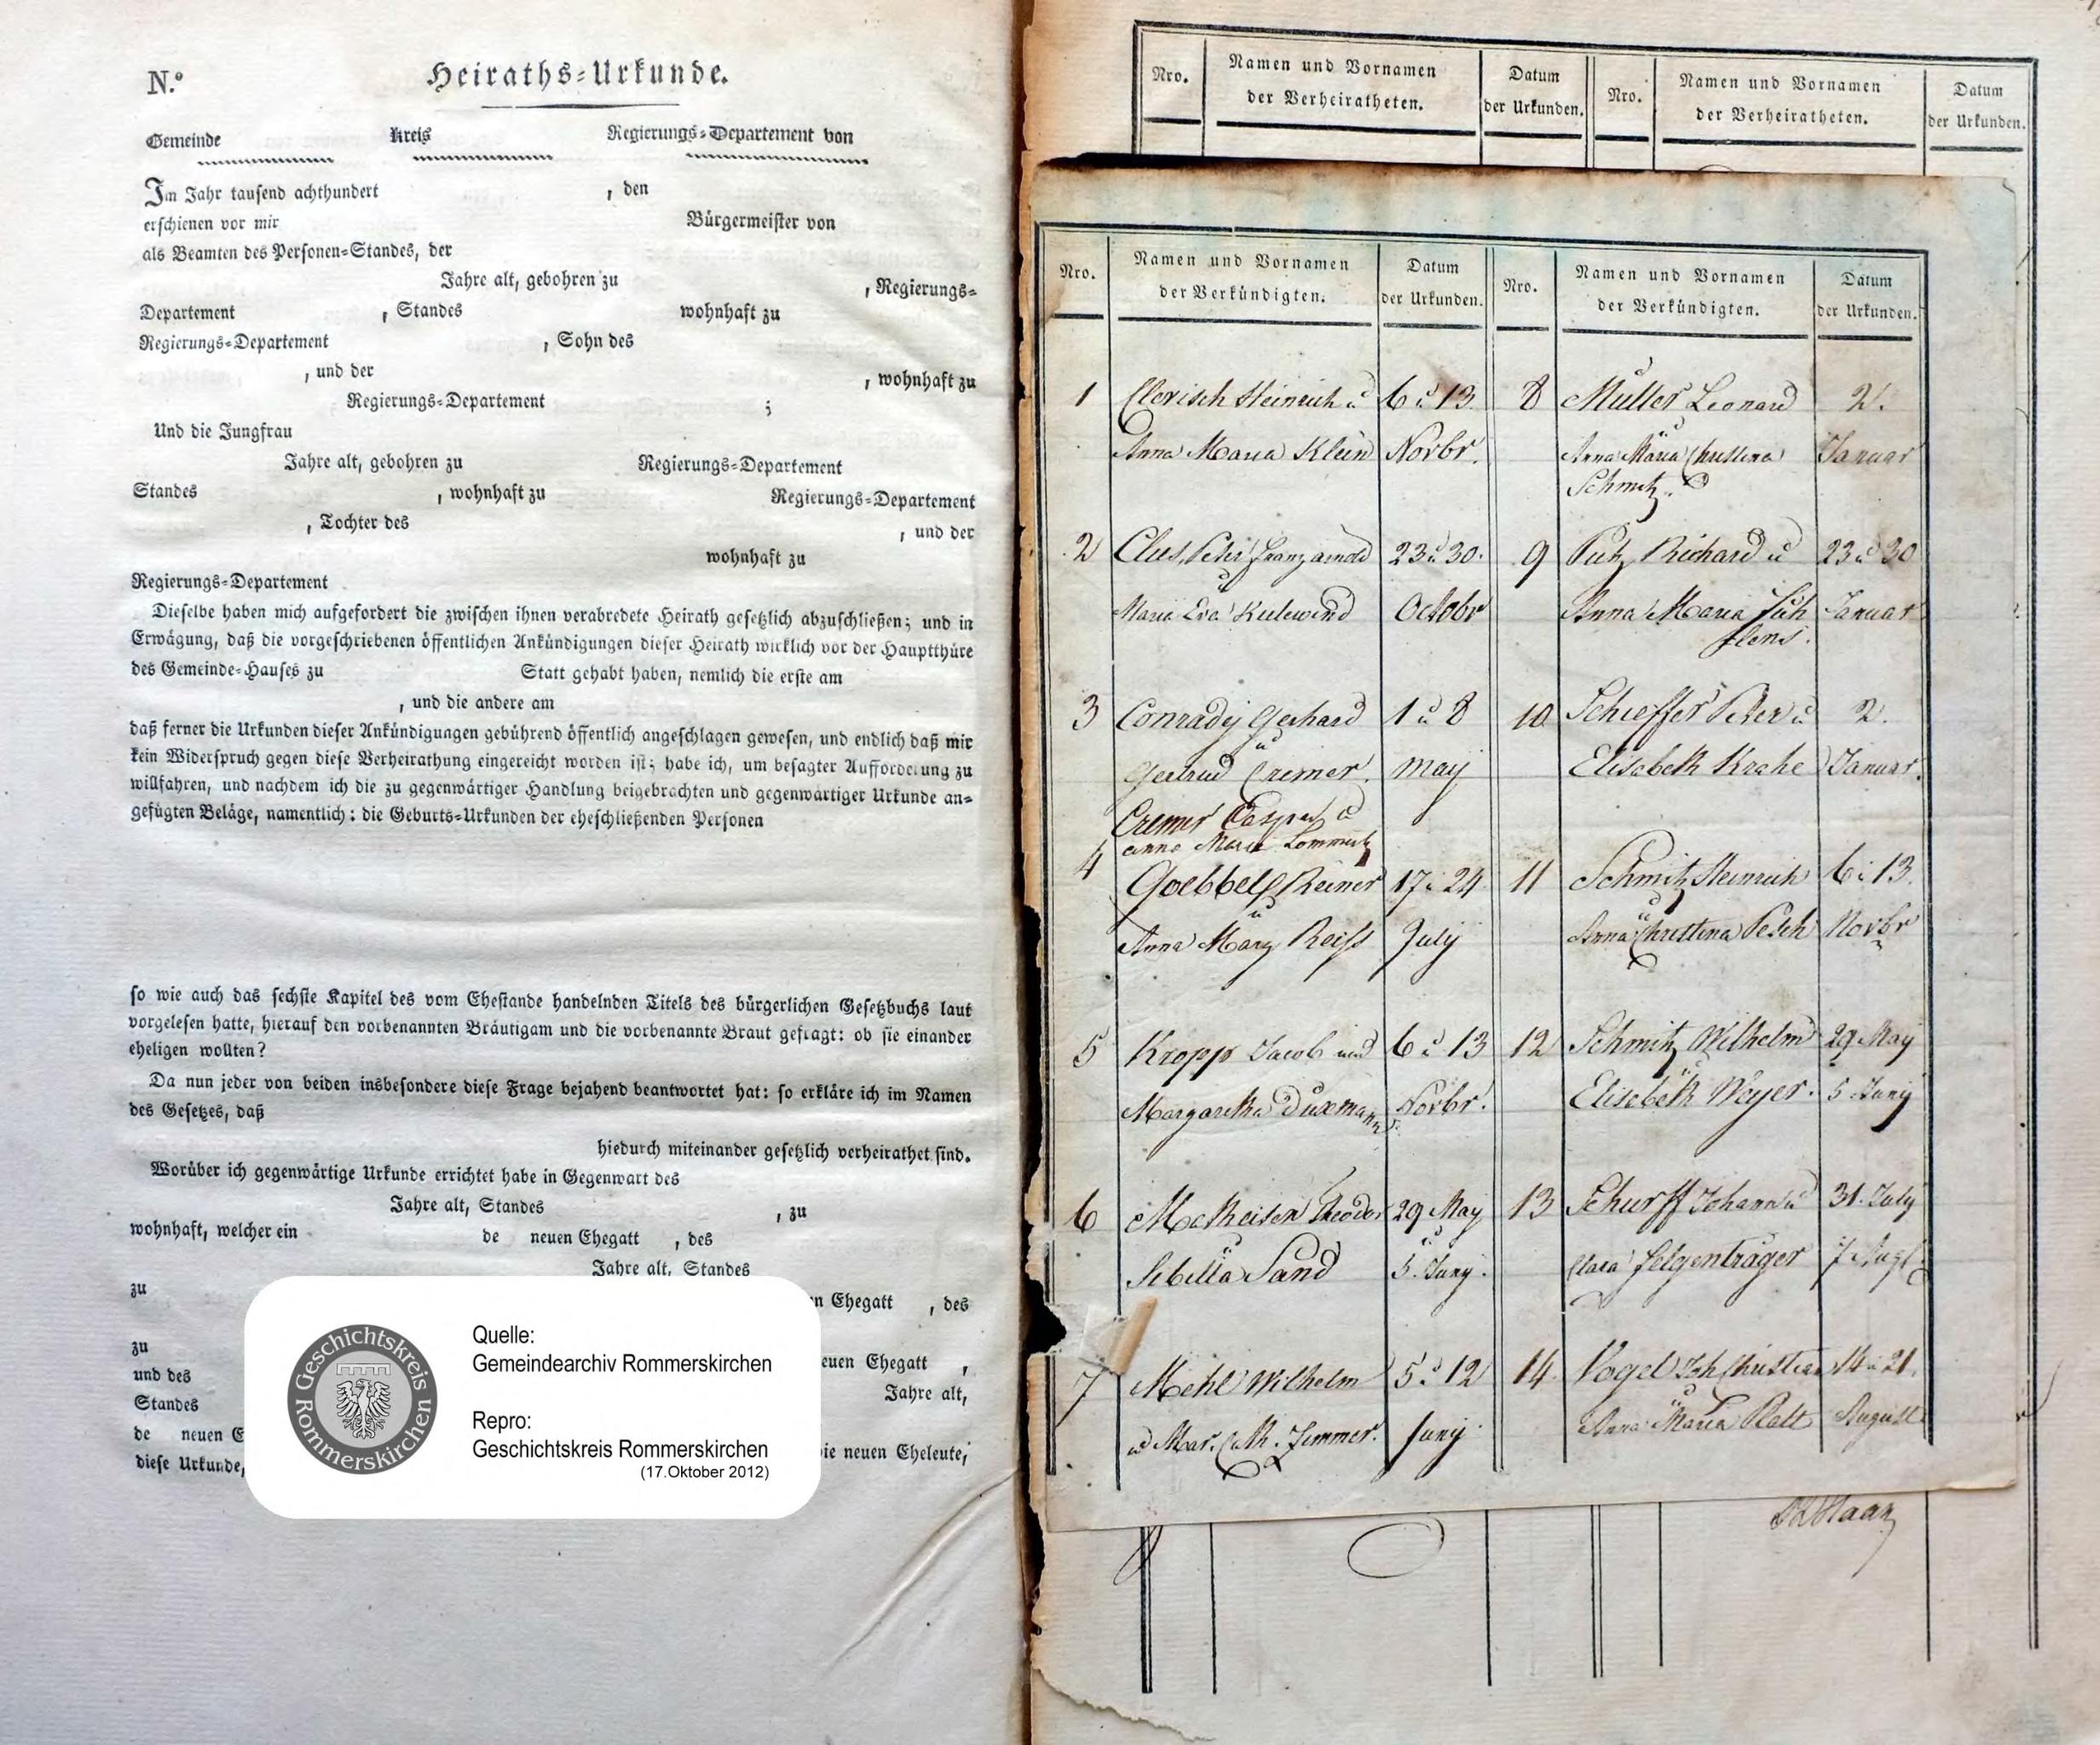 N.º Heiraths-Urkunde.
Gemeinde Kreis Regierungs-Departement von
Im Jahr tausend achthundert , den
erschienen vor mir Bürgermeister von
als Beamten des Personen-Standes, der
Jahre alt, gebohren zu , Regierungs-
Departement , Standes wohnhaft zu
Regierungs-Departement , Sohn des
, und der , wohnhaft zu
Regierungs-Departement ;
Und die Jungfrau
Jahre alt, gebohren zu Regierungs-Departement
Standes , wohnhaft zu Regierungs-Departement
, Tochter des , und der
wohnhaft zu
Regierungs-Departement
Dieselbe haben mich aufgefordert die zwischen ihnen verabredete Heirath gesetzlich abzuschließen; und in
Erwägung, daß die vorgeschriebenen öffentlichen Ankündigungen dieser Heirath wirklich vor der Hauptthüre
des Gemeinde-Hauses zu Statt gehabt haben, nemlich die erste am
, und die andere am
daß ferner die Urkunden dieser Ankündigungen gebührend öffentlich angeschlagen gewesen, und endlich daß mir
kein Widerspruch gegen diese Verheirathung eingereicht worden ist; habe ich, um besagter Aufforderung zu
willfahren, und nachdem ich die zu gegenwärtiger Handlung beigebrachten und gegenwärtiger Urkunde an-
gefügten Beläge, namentlich: die Geburts-Urkunden der eheschließenden Personen
so wie auch das sechste Kapitel des vom Ehestande handelnden Titels des bürgerlichen Gesetzbuchs laut
vorgelesen hatte, hierauf den vorbenannten Bräutigam und die vorbenannte Braut gefragt: ob sie einander
eheligen wollten?
Da nun jeder von beiden insbesondere diese Frage bejahend beantwortet hat: so erkläre ich im Namen
des Gesetzes, daß
hiedurch miteinander gesetzlich verheirathet sind.
Worüber ich gegenwärtige Urkunde errichtet habe in Gegenwart des
Jahre alt, Standes , zu
wohnhaft, welcher ein de neuen Ehegatt , des
Jahre alt, Standes
zu n Ehegatt , des
zu euen Ehegatt ,
und des Jahre alt,
Standes
de neuen E
diese Urkunde, die neuen Eheleute,
Geschichtskreis Rommerskirchen
Quelle:
Gemeindearchiv Rommerskirchen
Repro:
Geschichtskreis Rommerskirchen
(17.Oktober 2012)
Nro. Namen und Vornamen der Verheiratheten. Datum der Urkunden. Nro. Namen und Vornamen der Verheiratheten. Datum der Urkunden.
Nro. Namen und Vornamen der Verkündigten. Datum der Urkunden. Nro. Namen und Vornamen der Verkündigten. Datum der Urkunden.
1 Clevisch Heinrich u 6 u 13
Anna Maria Klein Novbr.
2 Clees Peter Franz arnold 23 u 30.
u
Maria Eva Keulewend Octobr
3 Conrady Gerhard 1 u 8
u
Gertrud Cremer. may
Cremer Caspar u
anna Maria Lommertz
4 Goebbels Reiner 17 u 24
u
Anna Marg Reiss July
5 Kropp Jacob und 6 u 13
Margaretha Duxmann Novbr.
6 Matheisen Theodor 29 May
u u
Sibilla Sand 5. Juny.
7 Mehl Wilhelm 5 u 12
u Mar. Cath. Zimmer. Juny
8 Müller Leonard 2.
u
Anna Maria Christina Januar
Schmitz.
9 Putz Richard u 23 u 30
Anna Maria Füh Januar
lens.
10 Schieffer Peter u 2.
Elisabeth Krahe Januar.
11 Schmitz Heinrich 6 u 13.
u
Anna Christina Pesch Novbr
12 Schmitz Wilhelm 29 May
u
Elisabeth Weyer. 5 Juny
13 Schurff Johann u 31. July
Clara Felgenträger 7 Augt.
14 Vogel Joh Christian 14 u 21.
u
Anna Maria Platt August